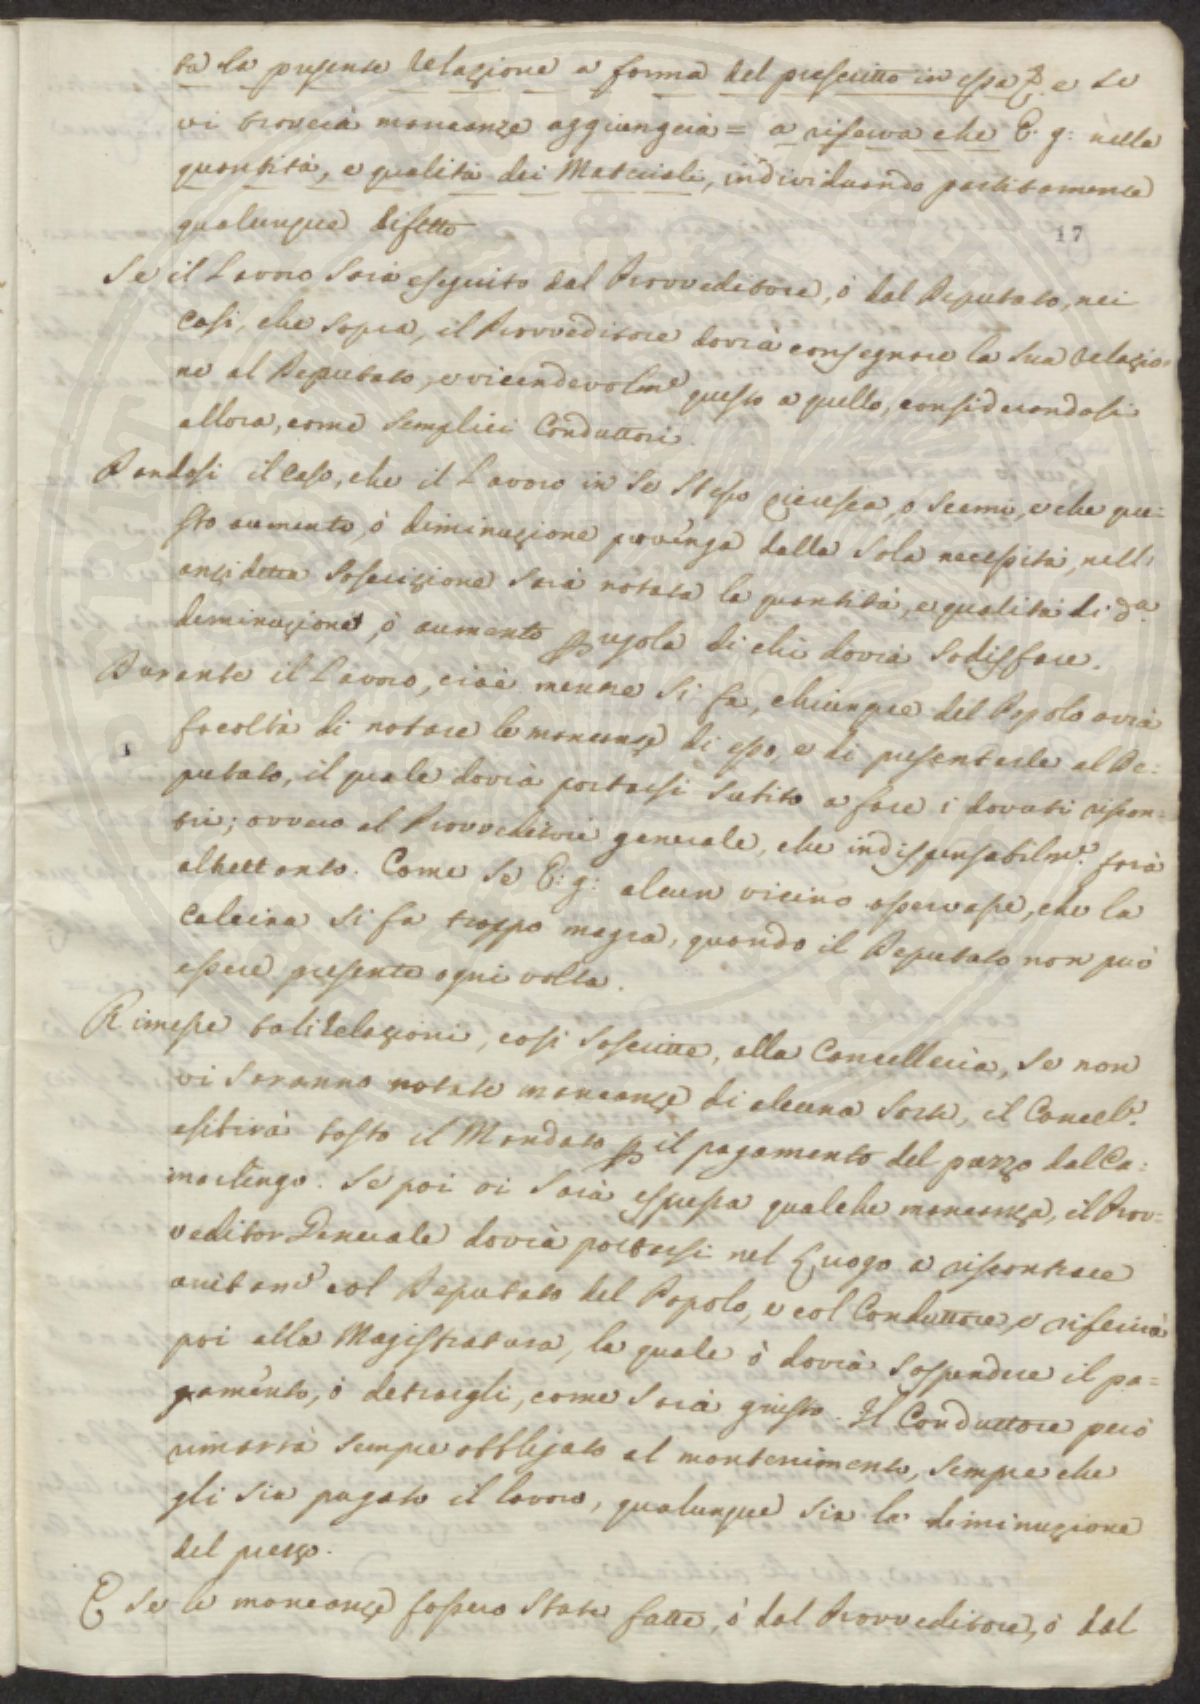 ta la presente Relazione a forma del prescritto in essa & e se
vi troverà mancanze aggiungerà = a riserva che E. g: nella
quantità, e qualità dei Materiali, individuando partitamente
qualunque difetto
17
Se il Lavoro sarà eseguito dal Provveditore, ò dal Deputato, nei
casi, che sopra, il Provveditore dovrà consegnare la sua relazio-
ne al Deputato, e vicendevolm.e questo a quello, considerandosi
allora, come semplici Conduttori.
Dandosi il caso, che il Lavoro in se stesso cresca, o scemi, e che que:
sto aumento, ò diminuzione provenga dalla sola necessità, nell'
anzidetta soscrizione sarà notata la quantità, e qualità di d.a
diminuzione, ò aumento p regola di chi dovrà sodisfare.
Durante il Lavoro, cioè mentre si fa, chiunque del Popolo avrà
facoltà di notare le mancanze di esso, e di presentarle al De:
putato, il quale dovrà portarsi subito a fare i dovuti riscon=
tri; ovvero al Provveditore generale, che indispensabilm.e farà
altrettanto. Come se E: g: alcun vicino osservasse, che la
calcina si fa troppo magra, quando il Deputato non può
essere presente ogni volta.
Rimesse tali relazioni, così soscritte, alla Cancelleria, se non
vi saranno notate mancanze di alcuna sorte, il Cancel.e
esibirà tosto il Mandato p il pagamento del prezzo dal Ca:
marlingo. Se poi vi sarà espressa qualche mancanza, il Prov=
veditor Generale dovrà portarsi nel Luogo a riscontrare
unitam.e col Deputato del Popolo, e col Conduttore, e riferirà
poi alla Magistratura, la quale ò dovrà sospendere il pa=
gamento, ò detrargli, come sarà giusto. Il Conduttore però
rimarrà sempre obbligato al mantenimento, sempre che
gli sia pagato il lavoro, qualunque sia la diminuzione
del prezzo.
E se le mancanze fossero state fatte, ò dal Provveditore, ò dal